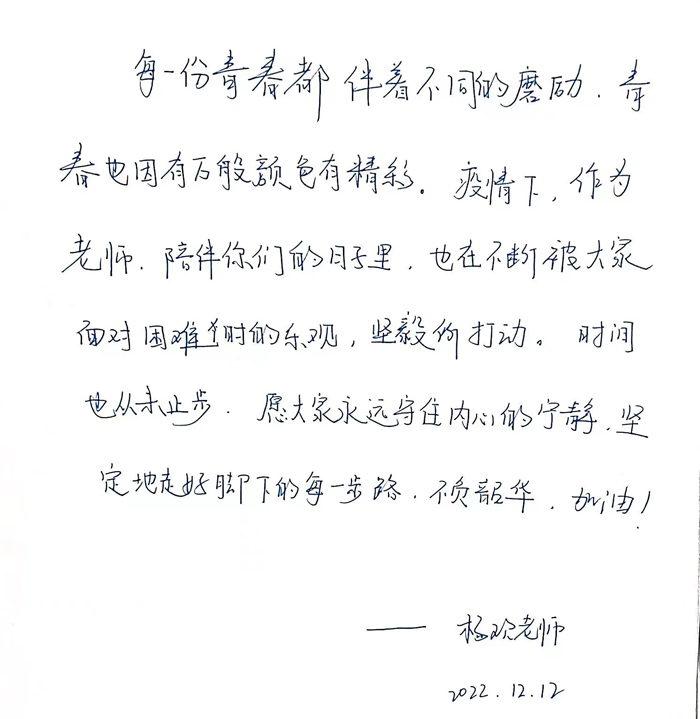 每一份青春都伴着不同的磨励，青
春也因有万般颜色有精彩。疫情下，作为
老师，陪伴你们的日子里，也在不断被大家
面对困难时的乐观，坚毅所打动。时间
也从未止步，愿大家永远守住内心的宁静，坚
定地走好脚下的每一步路，不负韶华，加油！
——杨欢老师
2022.12.12